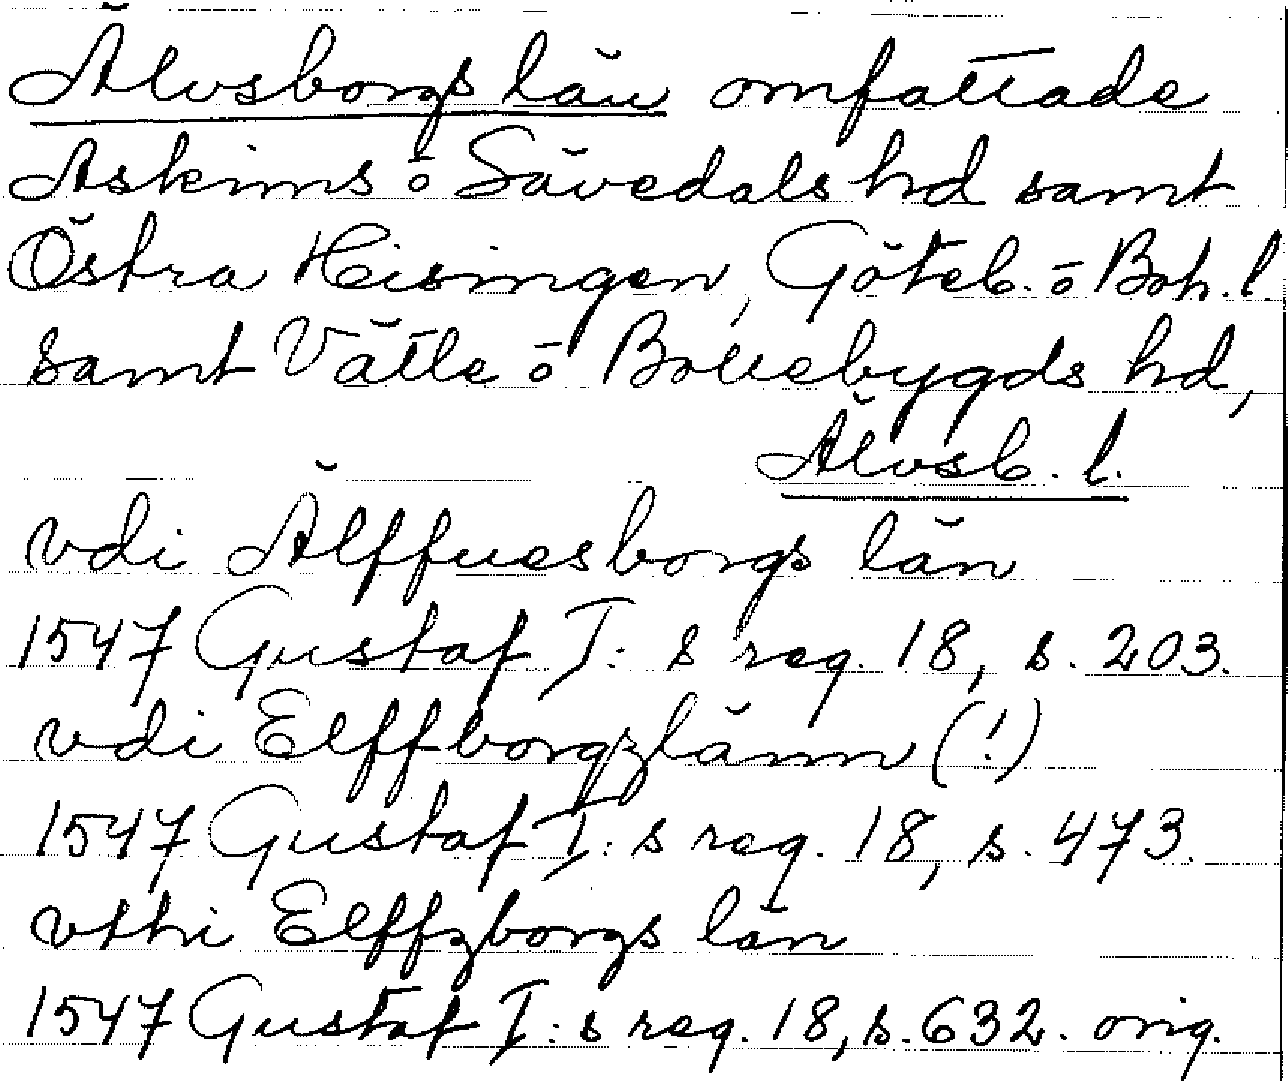 Älvsborgs län omfattade
Askims ō Sävedals hd samt
Östra Hisingen, Göteb. ō Boh. l
samt Vättle ō Bollebygds hd,
Älvsb. l.
vdi Älffuesborgs län
1547 Gustaf I: s reg. 18, s. 203.
vdi Elffborgzlänn (!)
1547 Gustaf I: s reg. 18, s. 473.
vthi Elffzborgs län
1547 Gustaf I: s reg. 18, s. 632. orig.